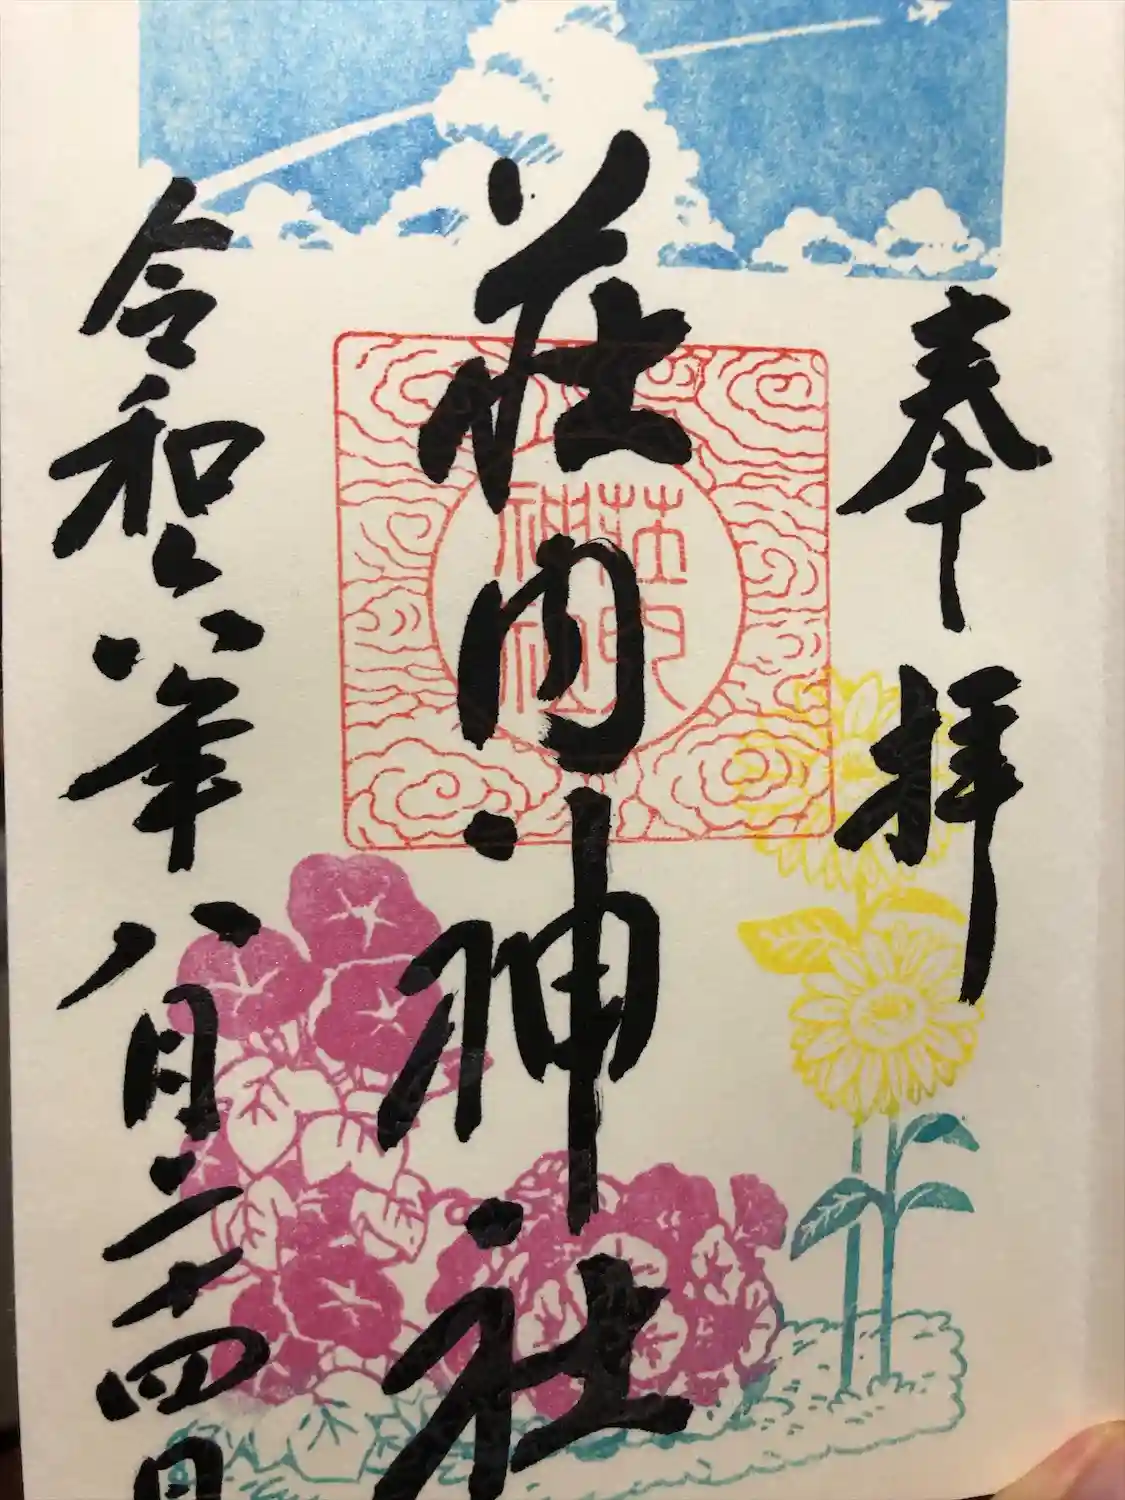 奉拝
荘内神社
荘内
神社
令和六年八月二十四日